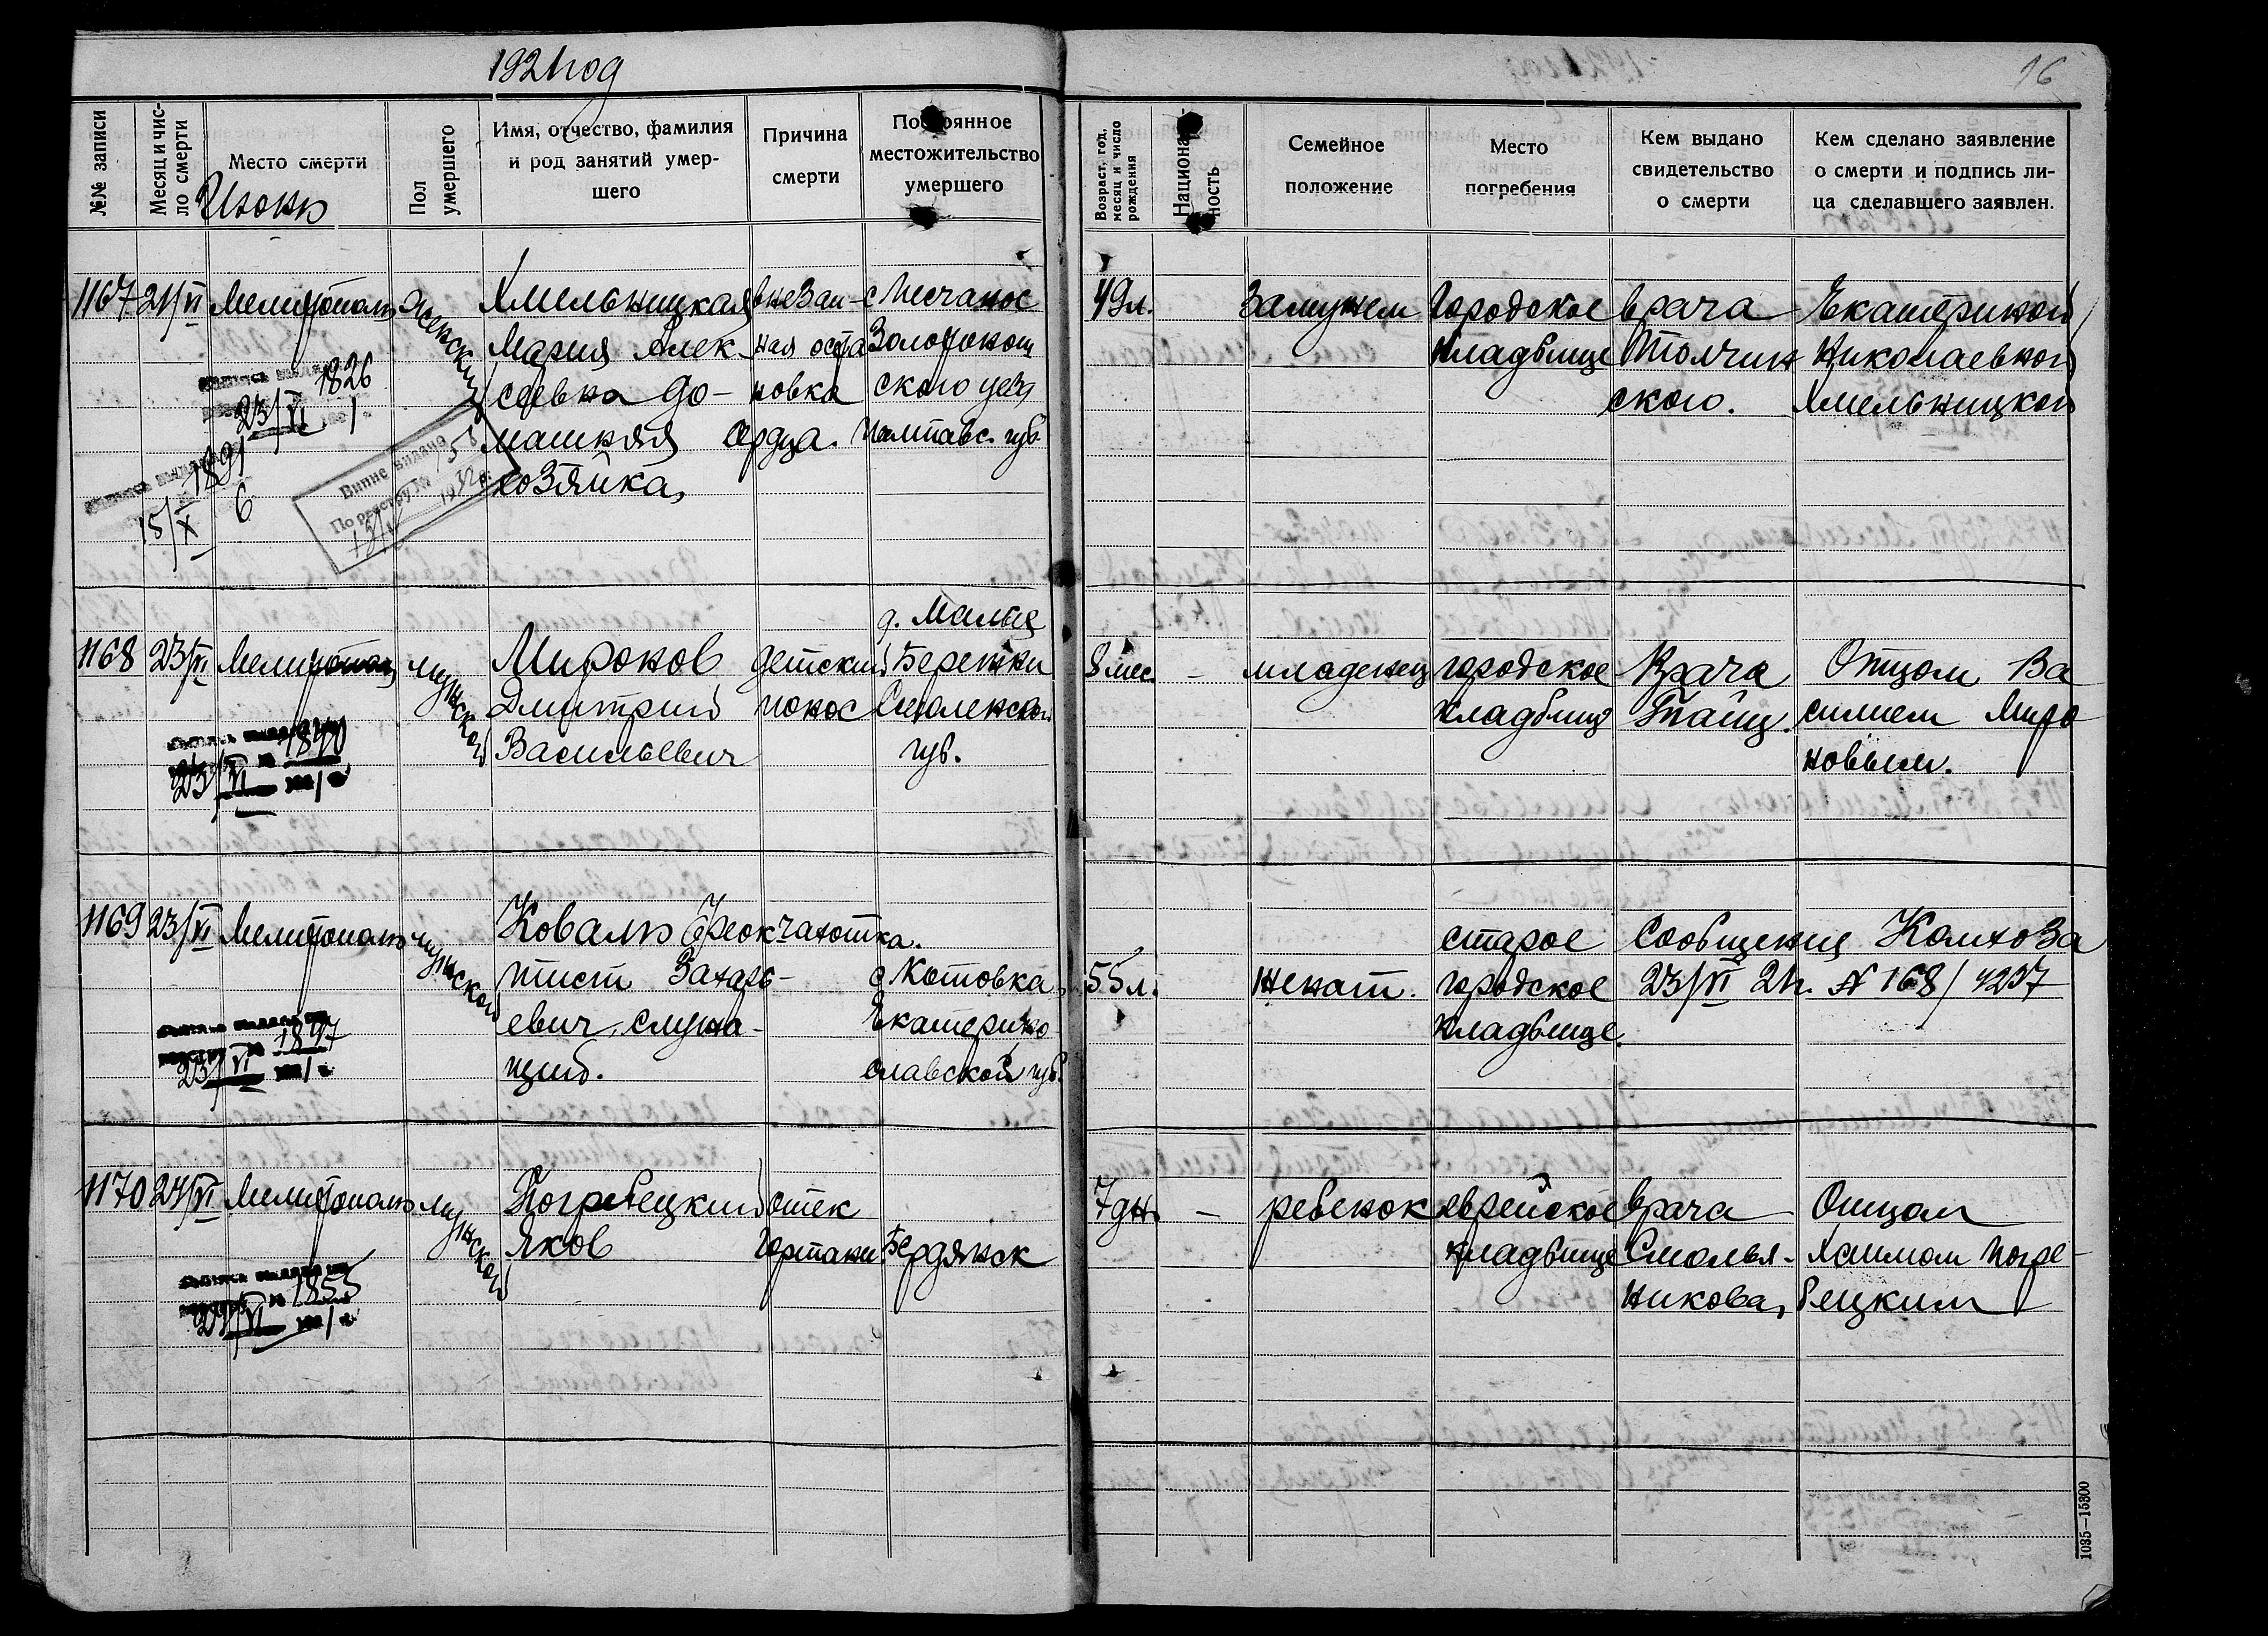 1921 год
16
№№ записи
Месяц и чис-
ло смерти
Место смерти
Июнь
Пол
умершего
Имя, отчество, фамилия
и род занятий умер-
шего
Причина
смерти
Постоянное
местожительство
умершего
Возраст, год,
месяц и число
рождения
Националь-
ность
Семейное
положение
Место
погребения
Кем выдано
свидетельство
о смерти
Кем сделано заявление
о смерти и подпись ли-
ца сделавшего заявлен.
1167 21/VI Мелитополь женский
Хмельницкая
Мария Алек-
сеевна до-
машняя
хозяйка,
внезап-
ная оста
новка
сердца.
с Песчаное
Золотонош
ского уезд
Полтавс. губ.
49л.
замужем
городское
кладбище
врача
Столчин
ского.
Екатериной
Николаевной
Хмельницкой
1826
23/VI 1
1891
15/X 6
Випис видано
По реєстру №
1168 23/VI Мелитополь мужской
Миронов
Дмитрий
Васильевич
детский
понос
д. Малые
Бережки
Смоленской
губ.
8 мес.
–
младенец
городское
кладбище
Врача
Тайц.
Отцом Ва
силием Миро
новым.
1840
23/VI
1169 23/VI Мелитополь мужской
Коваль Феок
тист Захарь-
евич, служа-
щий.
чахотка.
с. Котовка
Екатерино
славской губ.
55л.
женат.
старое
городское
кладбище.
Сообщение Комхоза
23/VI 21г. № 168/4237
1847
23/VI
1170 24/VI Мелитополь мужской
Погребецкий
Яков
отек
гортани.
Бердянск
7дн.
–
ребенок
еврейское
кладбище
врача
Смолья-
никова,
Отцом
Хаимом Погре-
бецким
1855
1035—15300